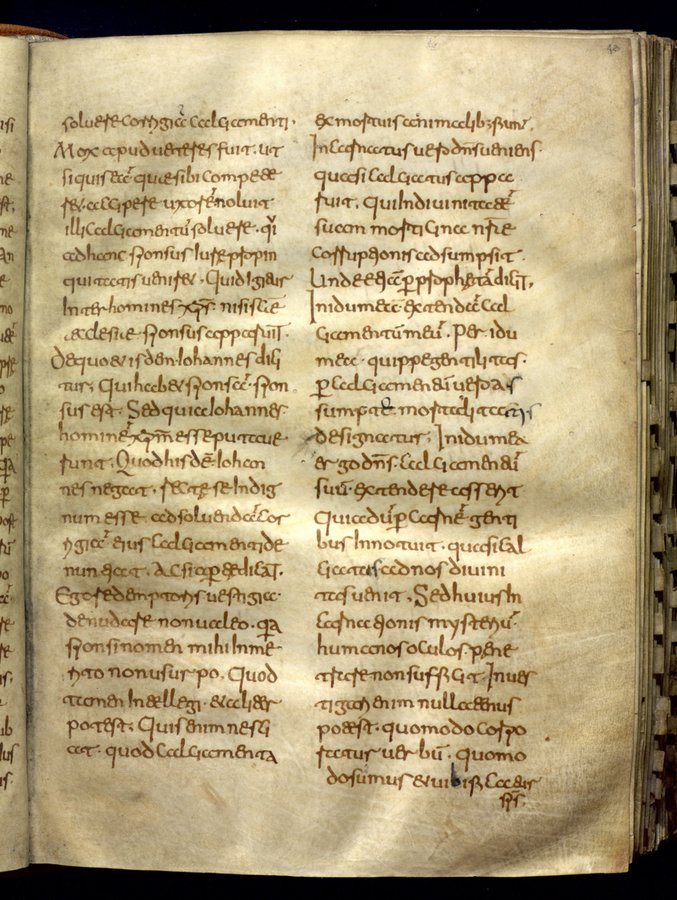 soluere corrigiā calciamenti.
Mox apud ueteres fuit. ut
si quis eā quae sibi compete
rꝫ. accipere uxorē noluit
illi calciamentū soluere. qi
ad hanc sponsus iure propin
quitatis uenirꝫ. Quid igitur
Inter homines xp̄s. nisi scae
aecclesiae sponsus apparuit.
De quo & isdem iohannes dici
tur. Qui habet sponsā. spon
sus est. Sed quia iohannes
hominē xpm̄ esse putaue
runt. Quod hisdē iohan
nes negat. recte se indig
num esse ad soluendā cor
rigiā eius calciamenti de
nuntiat. Ac si apte dicat.
Ego redemptoris uestigia
denudare non ualeo. qa
sponsi nomen mihi inme
rito non usurpo. Quod
tamen intellegi. & aliter
potest. Quis enim nesci
at. quod calciamenta
ex mortuis animalibꝫ fiunt.
Incarnatus uero dn̄s ueniens
quasi calciatus appa
ruit. Qui in diuinitate
suam morticina nr̄e
corruptionis adsumpsit.
Unde etiā ꝑ prophetā dicit.
In idumea extendā cal
ciamentū meū. Per idu
mea. quippe gentilitas.
ꝑ calciamentū uero as
sumpta mortalitas
designatur. In idumea
ergo dn̄s. calciamentū
suū extendere asserit
Quia dū ꝑ carnē genti
bus innotuit. quasi cal
ciatus ad nos diuini
tas uenit. Sed huius in
carnationis mysteriū
humanos oculos pene
trare non sufficit. Inues
tigari enim nullatenus
potest. quomodo corpo
ratur uerbū. quomo
do sumus & uiuificator
sps